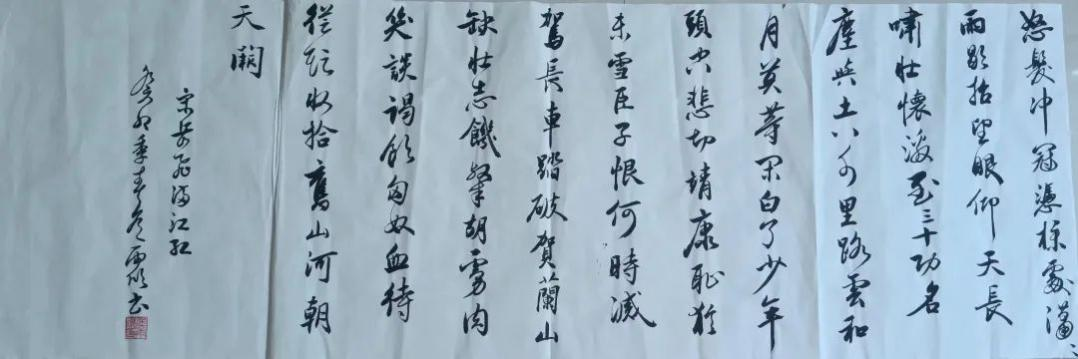 怒髮冲冠憑栏處瀟、
雨歇抬望眼仰天長
嘯壮懷激烈三十功名
塵與土八千里路雲和
月莫等闲白了少年
頭空悲切靖康恥猶
未雪臣子恨何時滅
駕長車踏破賀蘭山
缺壮志饑餐胡虜肉
笑談渴飲匈奴血待
從頭收拾舊山河朝
天闕
宋岳飛满江红
癸卯年春書